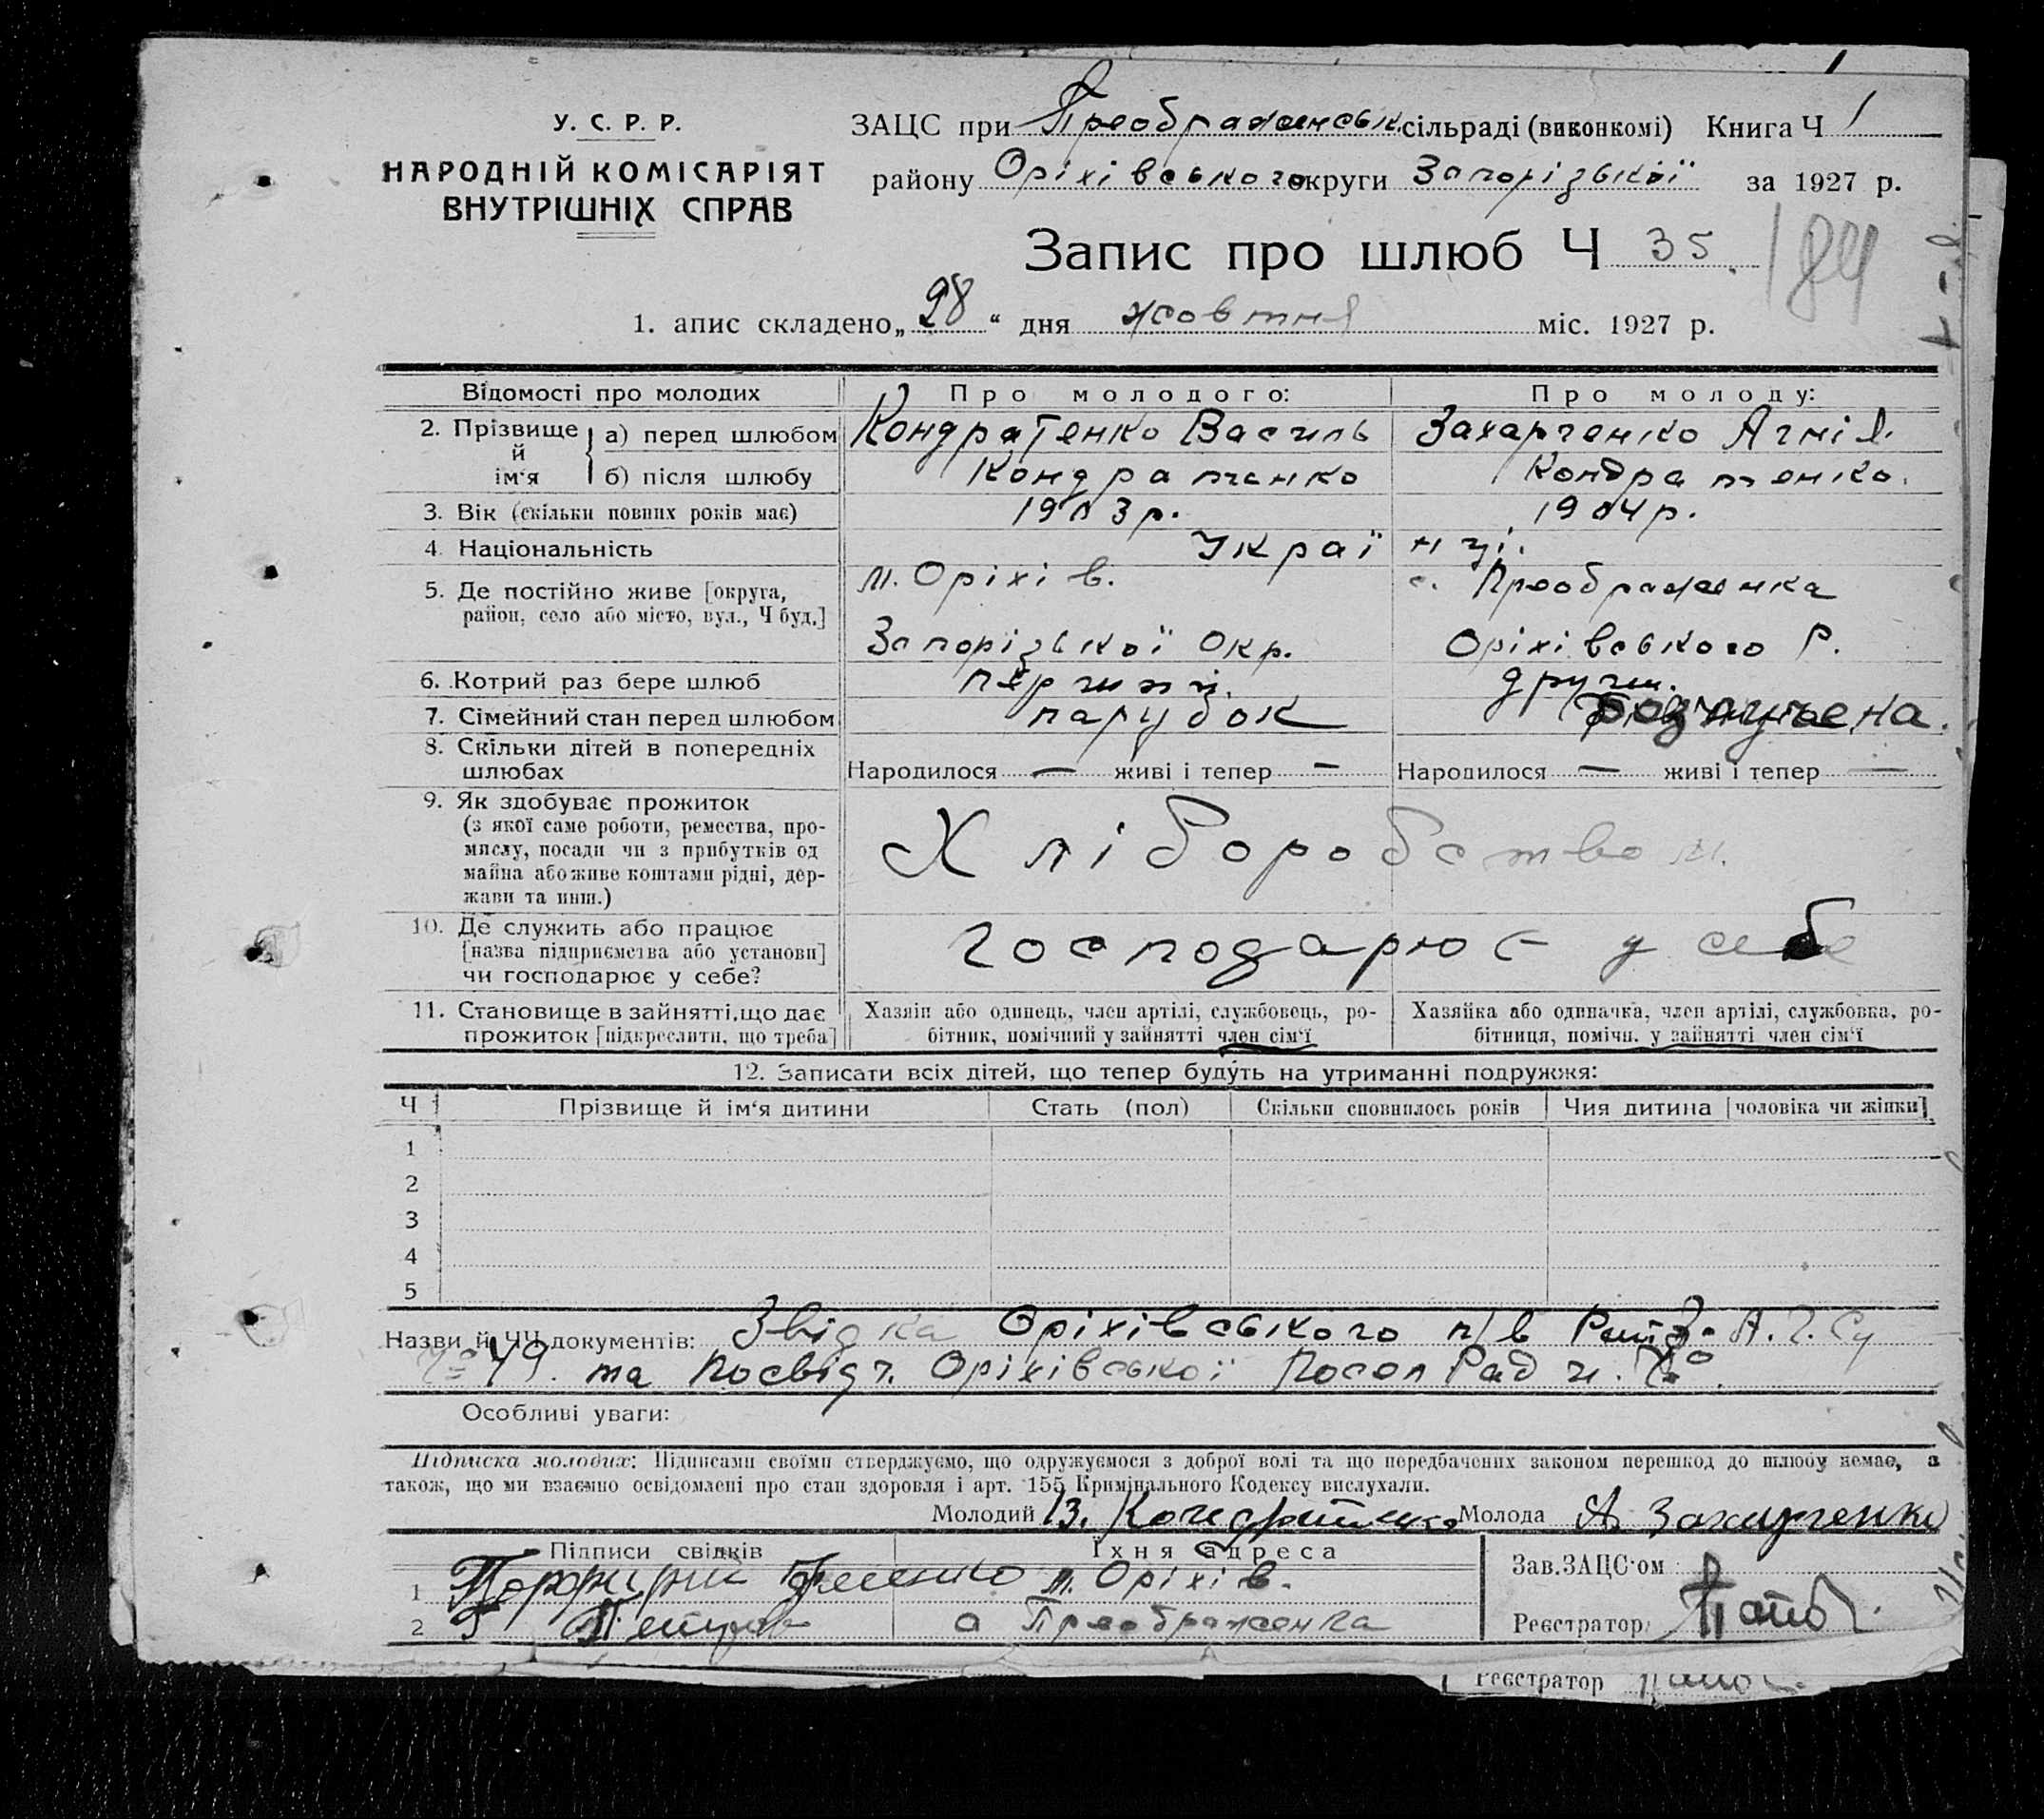 У. С. Р. Р.
НАРОДНІЙ КОМІСАРІЯТ
ВНУТРІШНІХ СПРАВ
ЗАЦС при Преображенськ. сільраді (виконкомі) Книга Ч 1
району Оріхівського округи Запорізької за 1927 р.
Запис про шлюб Ч 35. 184
1. апис складено „28“ дня жовтня міс. 1927 р.
Відомості про молодих Про молодого: Про молоду:
2. Прізвище й ім‘я
а) перед шлюбом Кондратенко Василь Захарченко
б) після шлюбу Кондратенко Кондратенко.
3. Вік (скільки повних років має) 1903 р. 1904 р.
4. Національність Украї нці.
5. Де постійно живе [округа, м. Оріхів. с. Преображенка
район, село або місто, вул., Ч буд.]
Запорізької Окр. Оріхівського Р.
6. Котрий раз бере шлюб
7. Сімейний стан перед шлюбом парубок
8. Скільки дітей в попередніх
шлюбах Народилося — живі і тепер — Народилося — живі і тепер —
9. Як здобуває прожиток
(з якої саме роботи, ремества, про-
мислу, посади чи з прибутків од
майна або живе коштами рідні, дер-
жави та инш.)
Хліборобством.
10. Де служить або працює
[назва підприємства або установи]
чи господарює у себе?
господарює у себе
11. Становище в зайнятті, що дає Хазяїн або одинець, член артілі, службовець, ро- Хазяйка або одиначка, член артілі, службовка, ро-
прожиток [підкреслити, що треба] бітник, помічний у зайнятті член сім‘ї бітниця, помічн. у зайнятті член сім‘ї
12. Записати всіх дітей, що тепер будуть на утриманні подружжя:
Ч Прізвище й ім‘я дитини Стать (пол) Скільки сповнилось років Чия дитина [чоловіка чи жінки]
1
2
3
4
5
Назви й ЧЧ документів: Звідка Оріхівського п/в
49. та Посвідч. Оріхівської Посел Рад
Особливі уваги:
Підписка молодих: Підписами своїми стверджуємо, що одружуємося з доброї волі та що передбачених законом перешкод до шлюбу немає, а
також, що ми взаємно освідомлені про стан здоровля і арт. 155 Кримінального Кодексу вислухали.
Молодий В. Кондратенко Молода А. Захарченко
Підписи свідків Їхня адреса Зав. ЗАЦС‘ом
1 Порфирий м. Оріхів.
2 с Преображенка Реєстратор
Реєстратор